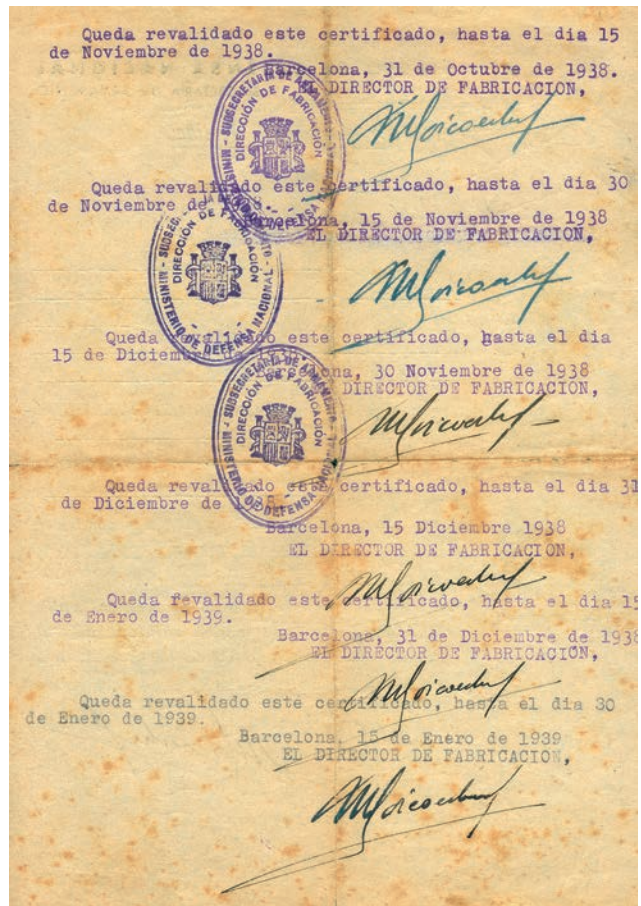 Queda revalidado este certificado, hasta el dia 15
de Noviembre de 1938.
Barcelona, 31 de Octubre de 1938.
EL DIRECTOR DE FABRICACION,
MINISTERIO DE DEFENSA NACIONAL - SUBSECRETARIA DE ARMAMENTO
DIRECCIÓN DE FABRICACIÓN
Queda revalidado este certificado, hasta el dia 30
de Noviembre de
Barcelona, 15 de Noviembre de 1938
EL DIRECTOR DE FABRICACION,
MINISTERIO DE DEFENSA NACIONAL - SUBSECRETARIA DE ARMAMENTO
DIRECCIÓN DE FABRICACIÓN
Queda revalidado este certificado, hasta el dia
15 de Diciembre
Barcelona, 30 Noviembre de 1938
DIRECTOR DE FABRICACION,
MINISTERIO DE DEFENSA NACIONAL - SUBSECRETARIA DE ARMAMENTO
DIRECCIÓN DE FABRICACIÓN
Queda revalidado este certificado, hasta el dia 31
de Diciembre de 1938.
Barcelona, 15 Diciembre de 1938
EL DIRECTOR DE FABRICACION,
Queda revalidado este certificado, hasta el dia 15
de Enero de 1939.
Barcelona, 31 de Diciembre de 1938
EL DIRECTOR DE FABRICACION,
Queda revalidado este certificado, hasta el dia 30
de Enero de 1939.
Barcelona, 15 de Enero de 1939
EL DIRECTOR DE FABRICACION,